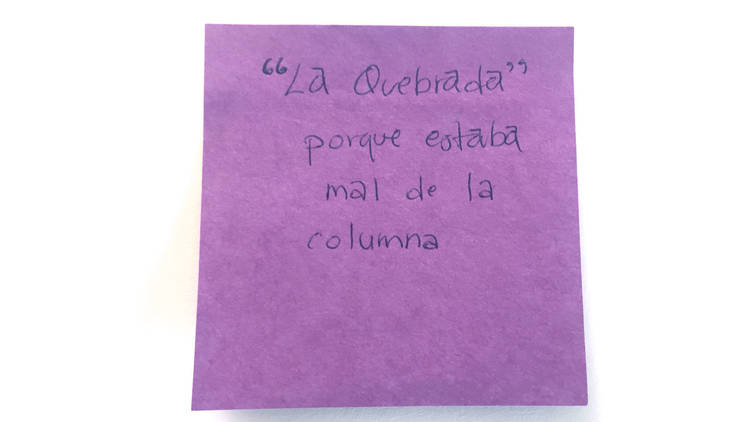 “La Quebrada”
porque estaba
mal de la
columna